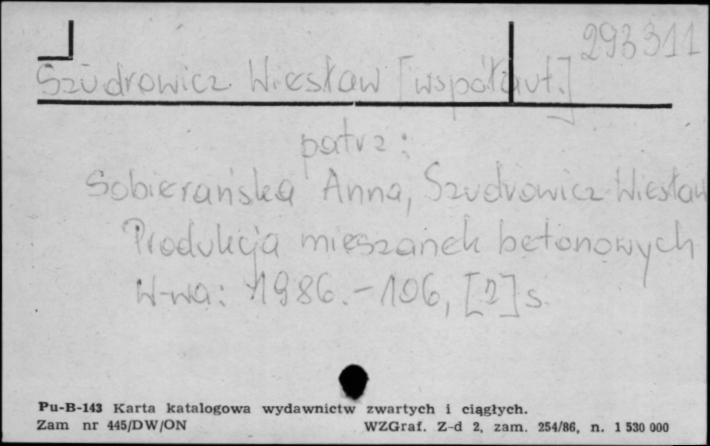 293311
Szudrowicz Wiesław [współaut.]
patrz:
Sobierańska Anna, Szudrowicz Wiesław
Produkcja mieszanek betonowych
W-wa: 1986.-106, [2] s.
Pu-B-143 Karta katalogowa wydawnictw zwartych i ciągłych.
Zam nr 445/DW/ON WZGraf. Z-d 2, zam. 254/86, n. 1 530 000